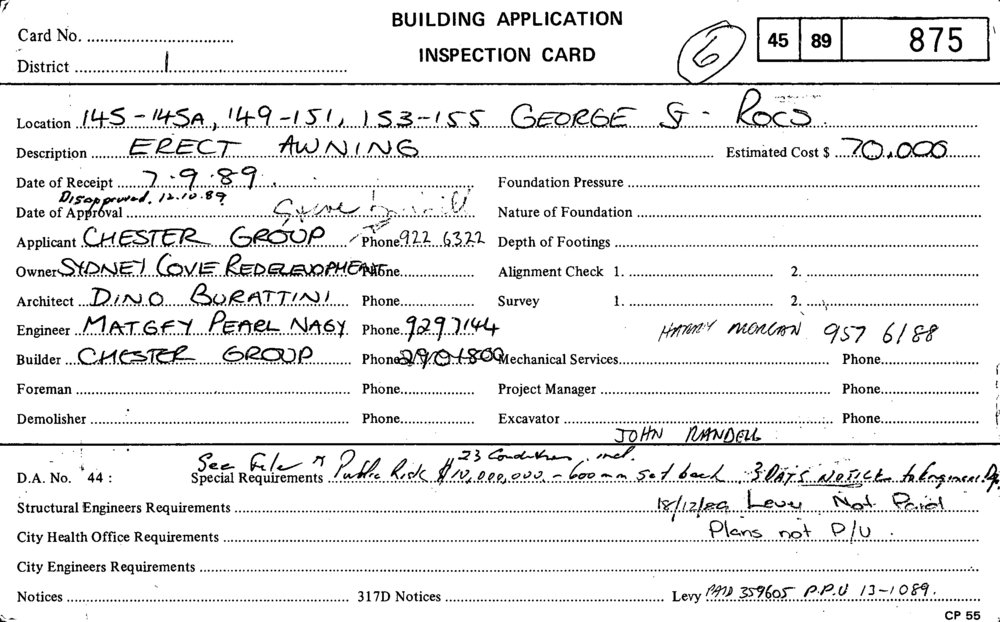 BUILDING APPLICATION
INSPECTION CARD
Card No.
District 1
6
45 89 875
Location 145-145A, 149-151, 153-155 GEORGE St - ROCS
Description ERECT AWNING Estimated Cost $ 70,000
Date of Receipt 7.9.89 Foundation Pressure
Disapproved. 12.10.89
Date of Approval Steve Nature of Foundation
Applicant CHESTER GROUP Phone 922 6322 Depth of Footings
Owner SYDNEY COVE REDELEVOPMENT Phone Alignment Check 1. 2.
Architect DINO BURATTINI Phone Survey 1. 2.
Engineer MATGFY PEARL NAGY Phone 9297144 HARRY MORGAN 957 6188
Builder CHESTER GROUP Phone 2901800 Mechanical Services Phone
Foreman Phone Project Manager Phone
Demolisher Phone Excavator Phone
JOHN RANDELL
See File 23 Conditions incl.
D.A. No. 44 : Special Requirements Public Risk $10,000,000 - 600mm set back 3 DAYS NOTICE to Engineers
Structural Engineers Requirements 18/12/89 Levy Not Paid
City Health Office Requirements Plans not P/U.
City Engineers Requirements
Notices 317D Notices Levy PAID 359605 P.P.U 13-1089.
CP 55